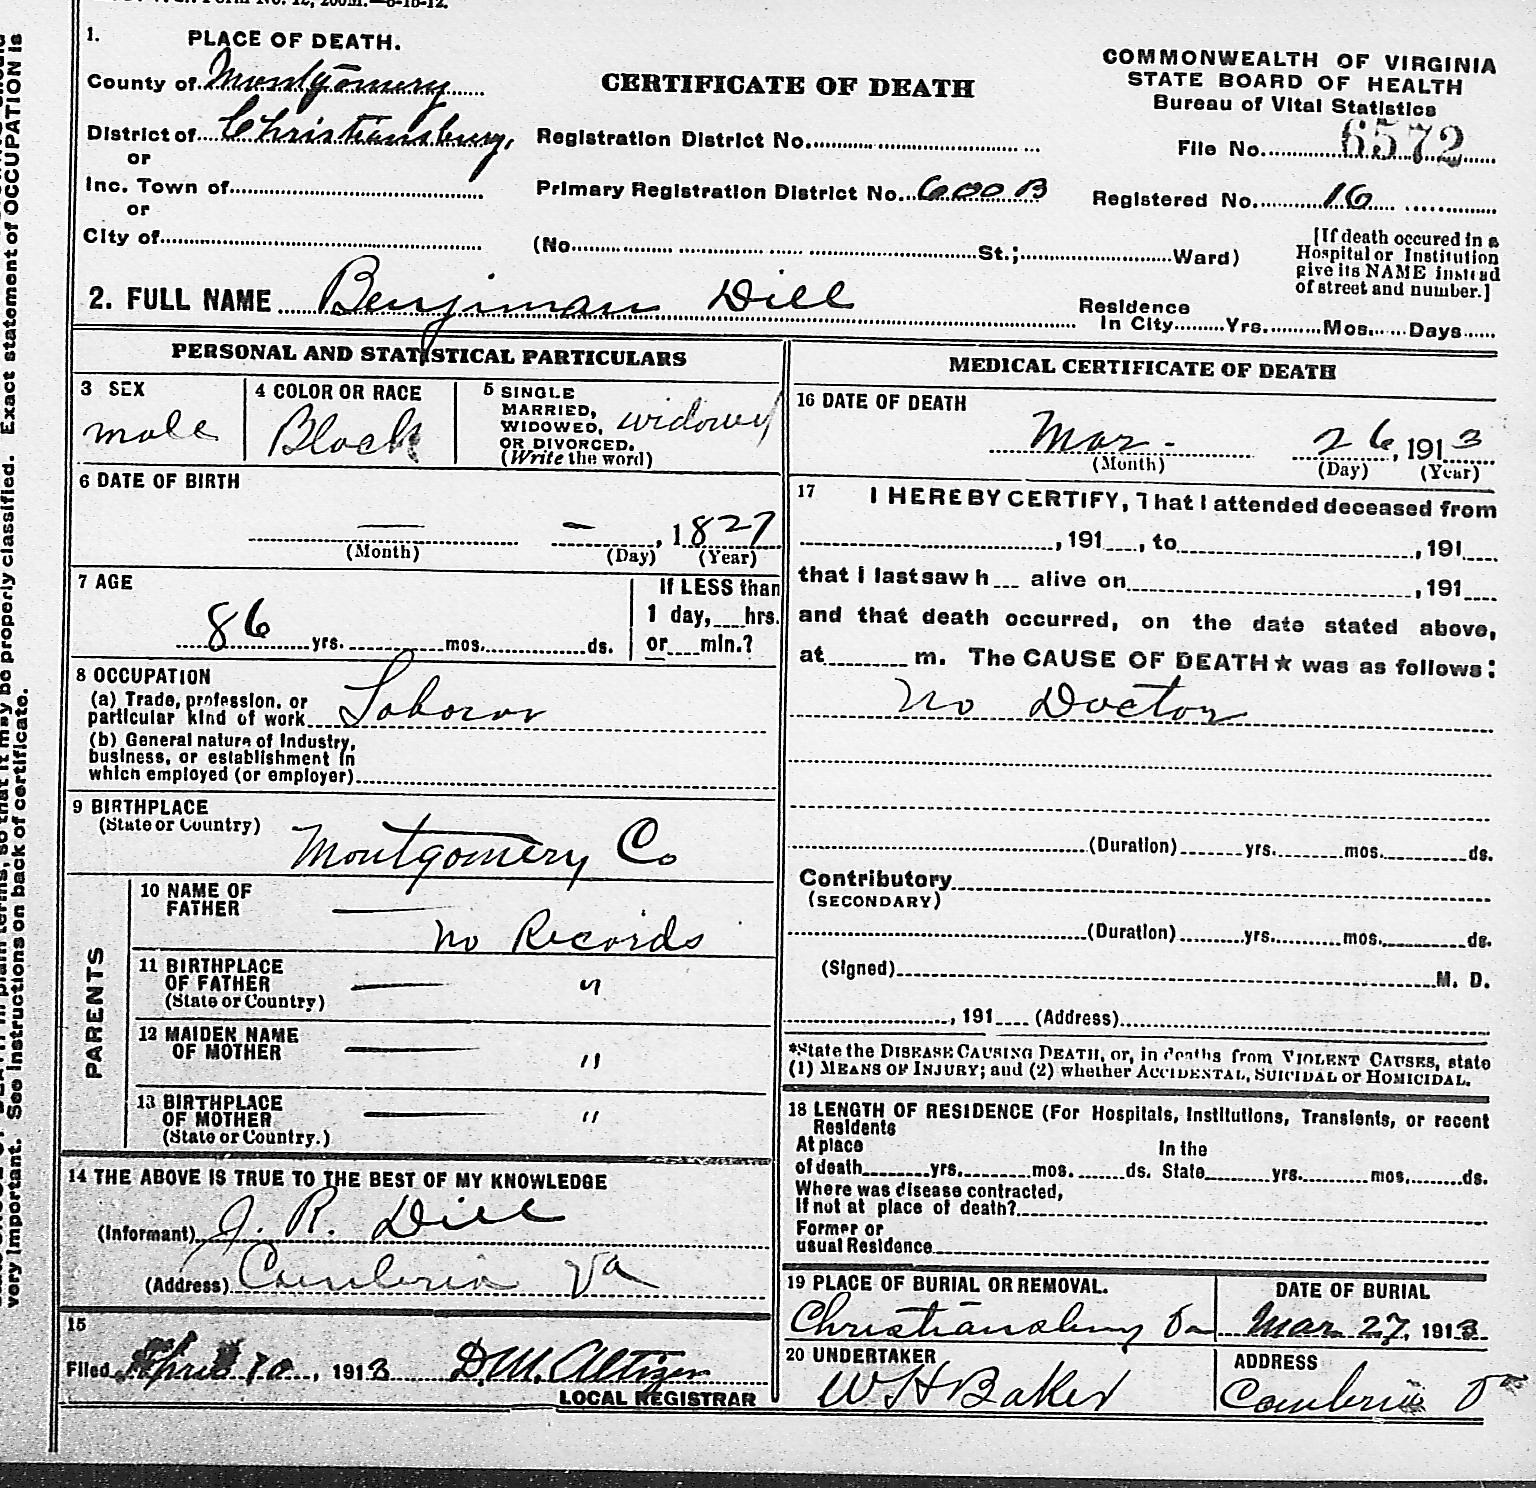 1. PLACE OF DEATH.
County of Montgomery
District of Christiansburg,
or
Inc. Town of
or
City of
CERTIFICATE OF DEATH
Registration District No.
Primary Registration District No. 600 B
(No. St.; Ward)
COMMONWEALTH OF VIRGINIA
STATE BOARD OF HEALTH
Bureau of Vital Statistics
File No. 6572
Registered No. 16
[If death occured in a
Hospital or Institution
give its NAME instead
of street and number.]
2. FULL NAME Benjiman Dill
Residence
In City Yrs. Mos. Days
PERSONAL AND STATISTICAL PARTICULARS
3 SEX
male
4 COLOR OR RACE
Black
5 SINGLE
MARRIED,
WIDOWED,
OR DIVORCED.
(Write the word)
widowed
6 DATE OF BIRTH
— — , 1827
(Month) (Day) (Year)
7 AGE
86 yrs. mos. ds.
If LESS than
1 day, hrs.
or min.?
8 OCCUPATION
(a) Trade, profession, or
particular kind of work Laboror
(b) General nature of Industry,
business, or establishment in
which employed (or employer)
9 BIRTHPLACE
(State or Country)
Montgomery Co
PARENTS
10 NAME OF
FATHER
— no Records
11 BIRTHPLACE
OF FATHER
(State or Country)
— "
12 MAIDEN NAME
OF MOTHER
— "
13 BIRTHPLACE
OF MOTHER
(State or Country.)
— "
14 THE ABOVE IS TRUE TO THE BEST OF MY KNOWLEDGE
(Informant) J. R. Dill
(Address) Cambria Va
15
Filed April 10, 1913 D.M. Altizer
LOCAL REGISTRAR
MEDICAL CERTIFICATE OF DEATH
16 DATE OF DEATH
Mar - 26, 1913
(Month) (Day) (Year)
17 I HEREBY CERTIFY, That I attended deceased from
, 191 , to , 191
that I last saw h alive on , 191
and that death occurred, on the date stated above,
at m. The CAUSE OF DEATH★ was as follows:
no Doctor
(Duration) yrs. mos. ds.
Contributory
(SECONDARY)
(Duration) yrs. mos. ds.
(Signed) M. D.
, 191 (Address)
*State the DISEASE CAUSING DEATH, or, in deaths from VIOLENT CAUSES, state
(1) MEANS OF INJURY; and (2) whether ACCIDENTAL, SUICIDAL or HOMICIDAL.
18 LENGTH OF RESIDENCE (For Hospitals, Institutions, Transients, or recent
Residents
At place In the
of death yrs. mos. ds. State yrs. mos. ds.
Where was disease contracted,
If not at place of death?
Former or
usual Residence
19 PLACE OF BURIAL OR REMOVAL.
Christiansburg Va
DATE OF BURIAL
Mar 27, 1913
20 UNDERTAKER
W H Baker
ADDRESS
Cambria Va
Exact statement of OCCUPATION is
so that it may be properly classified.
very important. See instructions on back of certificate.